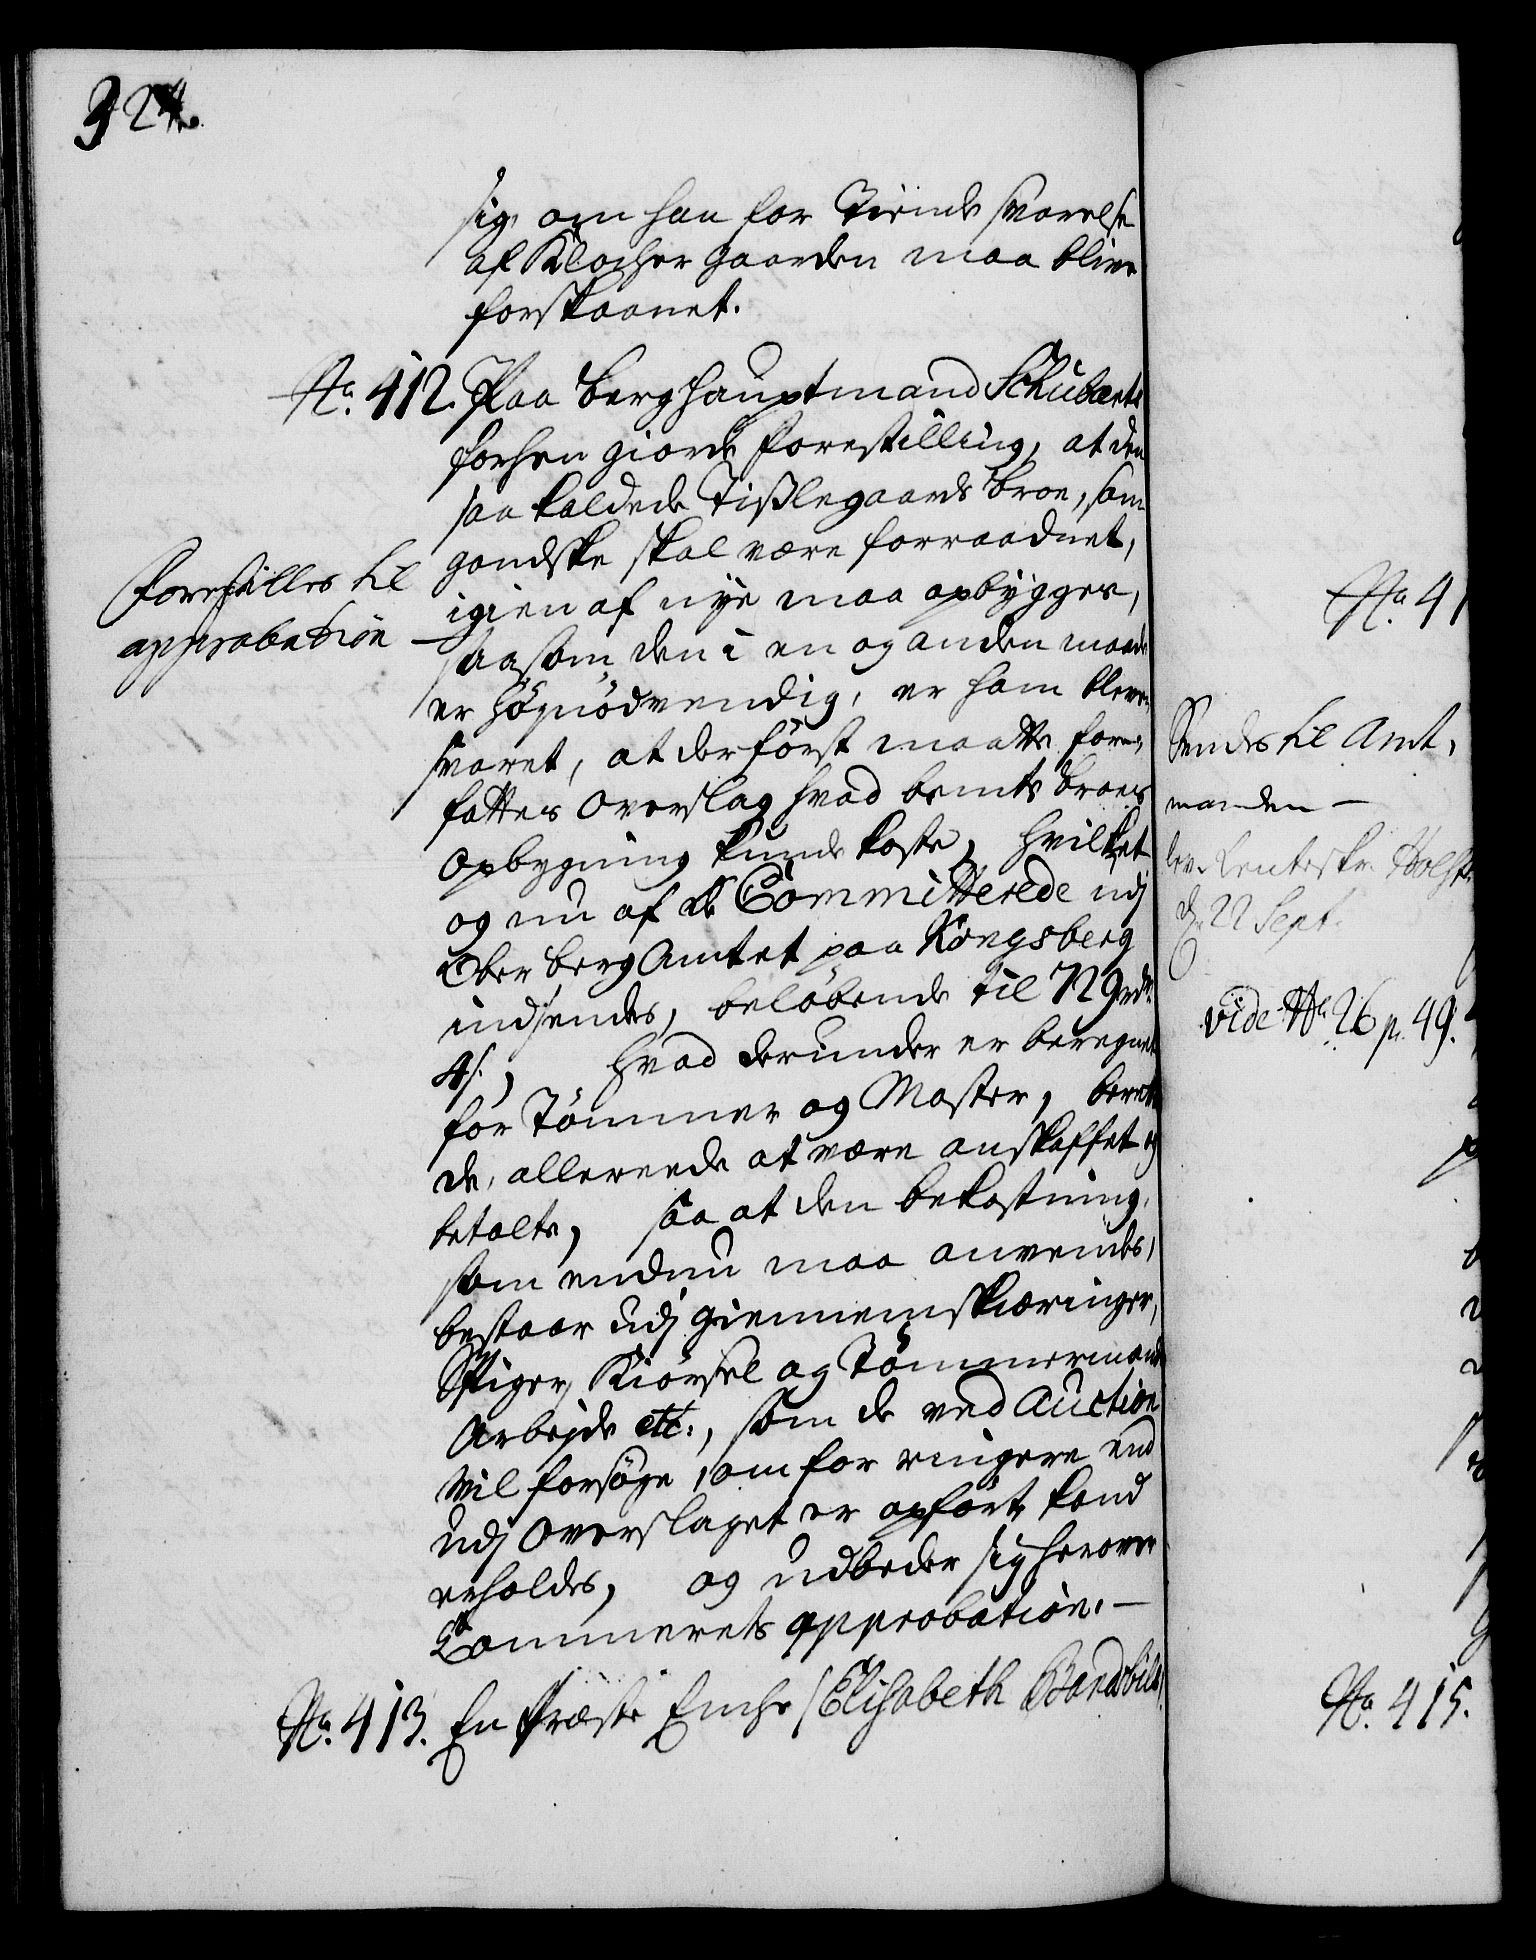 324.
sig, om han for Tiende svarelse
af Klocker gaarden maa blive
forskaanet.
No. 412. Paa Berghauptmand Schubarts
forhen giorde Forestilling, at den
saa kaldede Tißlegaards Broe, som
gandske skal være forraadnet,
igien af nye maa opbygges,
saasom den i en og anden maade
er höynödvendig, er ham bleven
svaret, at der först maatte for-
fattes Overslag hvad bemte Broes
Opbygning kunde koste, hvilket
og nu af de Committerede udj
Ober Berg Amtet paa Kongsberg
indsendes, belöbende til 729 rdr.
4 s., hvad derunder er beregnet
for Tömmer og Master, beretter
de, allereede at være anskaffet og
betalte, saa at den bekostning,
som endnu maa anvendes,
bestaar udj Giennemskiæringer,
Spiger, Kiörsel og Tömmermands
Arbejde etc., som de ved Auction
vil forsöge, om for ringere end
udj Overslaget er opfört, kand
erholdes, og udbeder sig herover
Cammerets approbation. -
Forestilles til
approbation -
No. 413. En Præste Enche /Elisabeth
No. 41
Sendes til Amt-
manden -
lev. Renteskr. Holst
d. 22 Sept.
vide No. 26 p. 49.
No. 415.